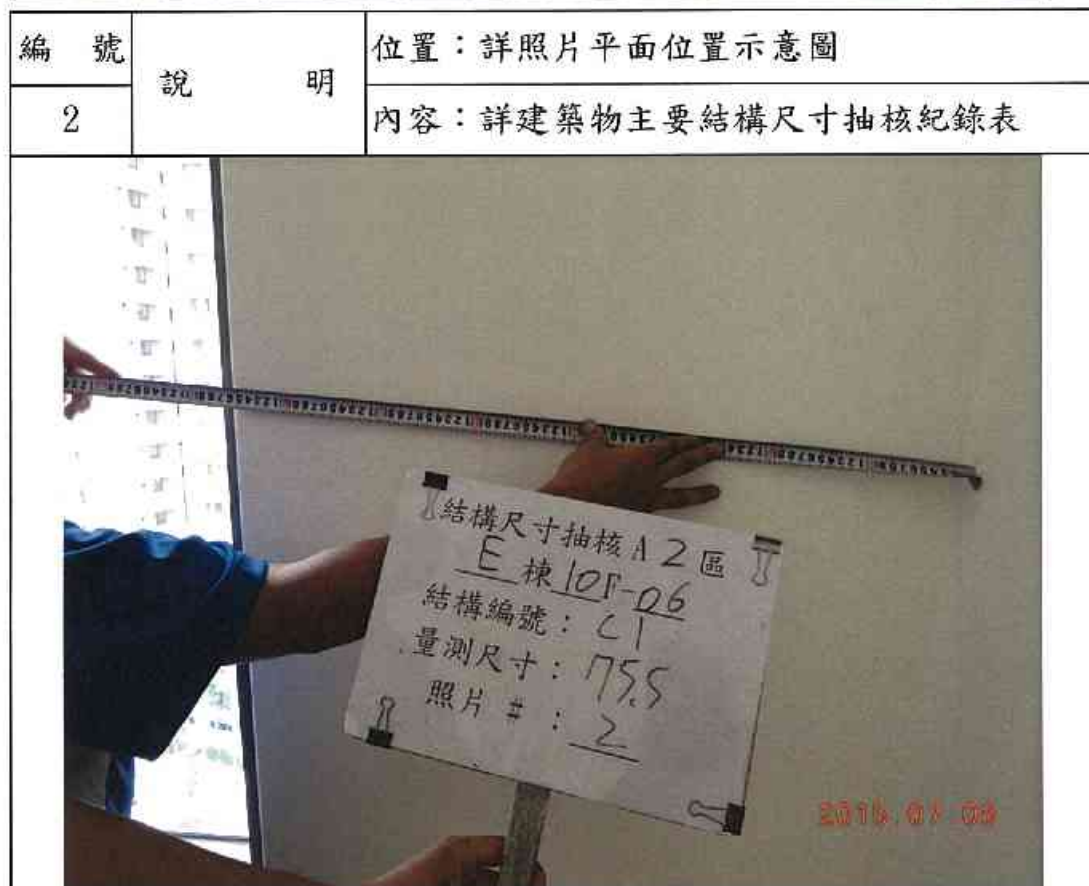 編 號
2
說 明
位置：詳照片平面位置示意圖
內容：詳建築物主要結構尺寸抽核紀錄表
結構尺寸抽核A2區
E棟10F-06
結構編號：C1
量測尺寸：75.5
照片#：2